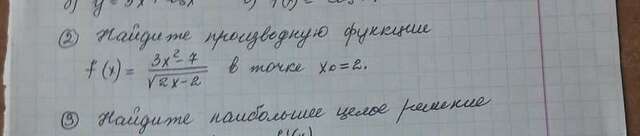 ② Найдите производную функции
f(x) = (3x²-7)/√(2x-2) в точке x₀=2.
③ Найдите наибольшее целое решение